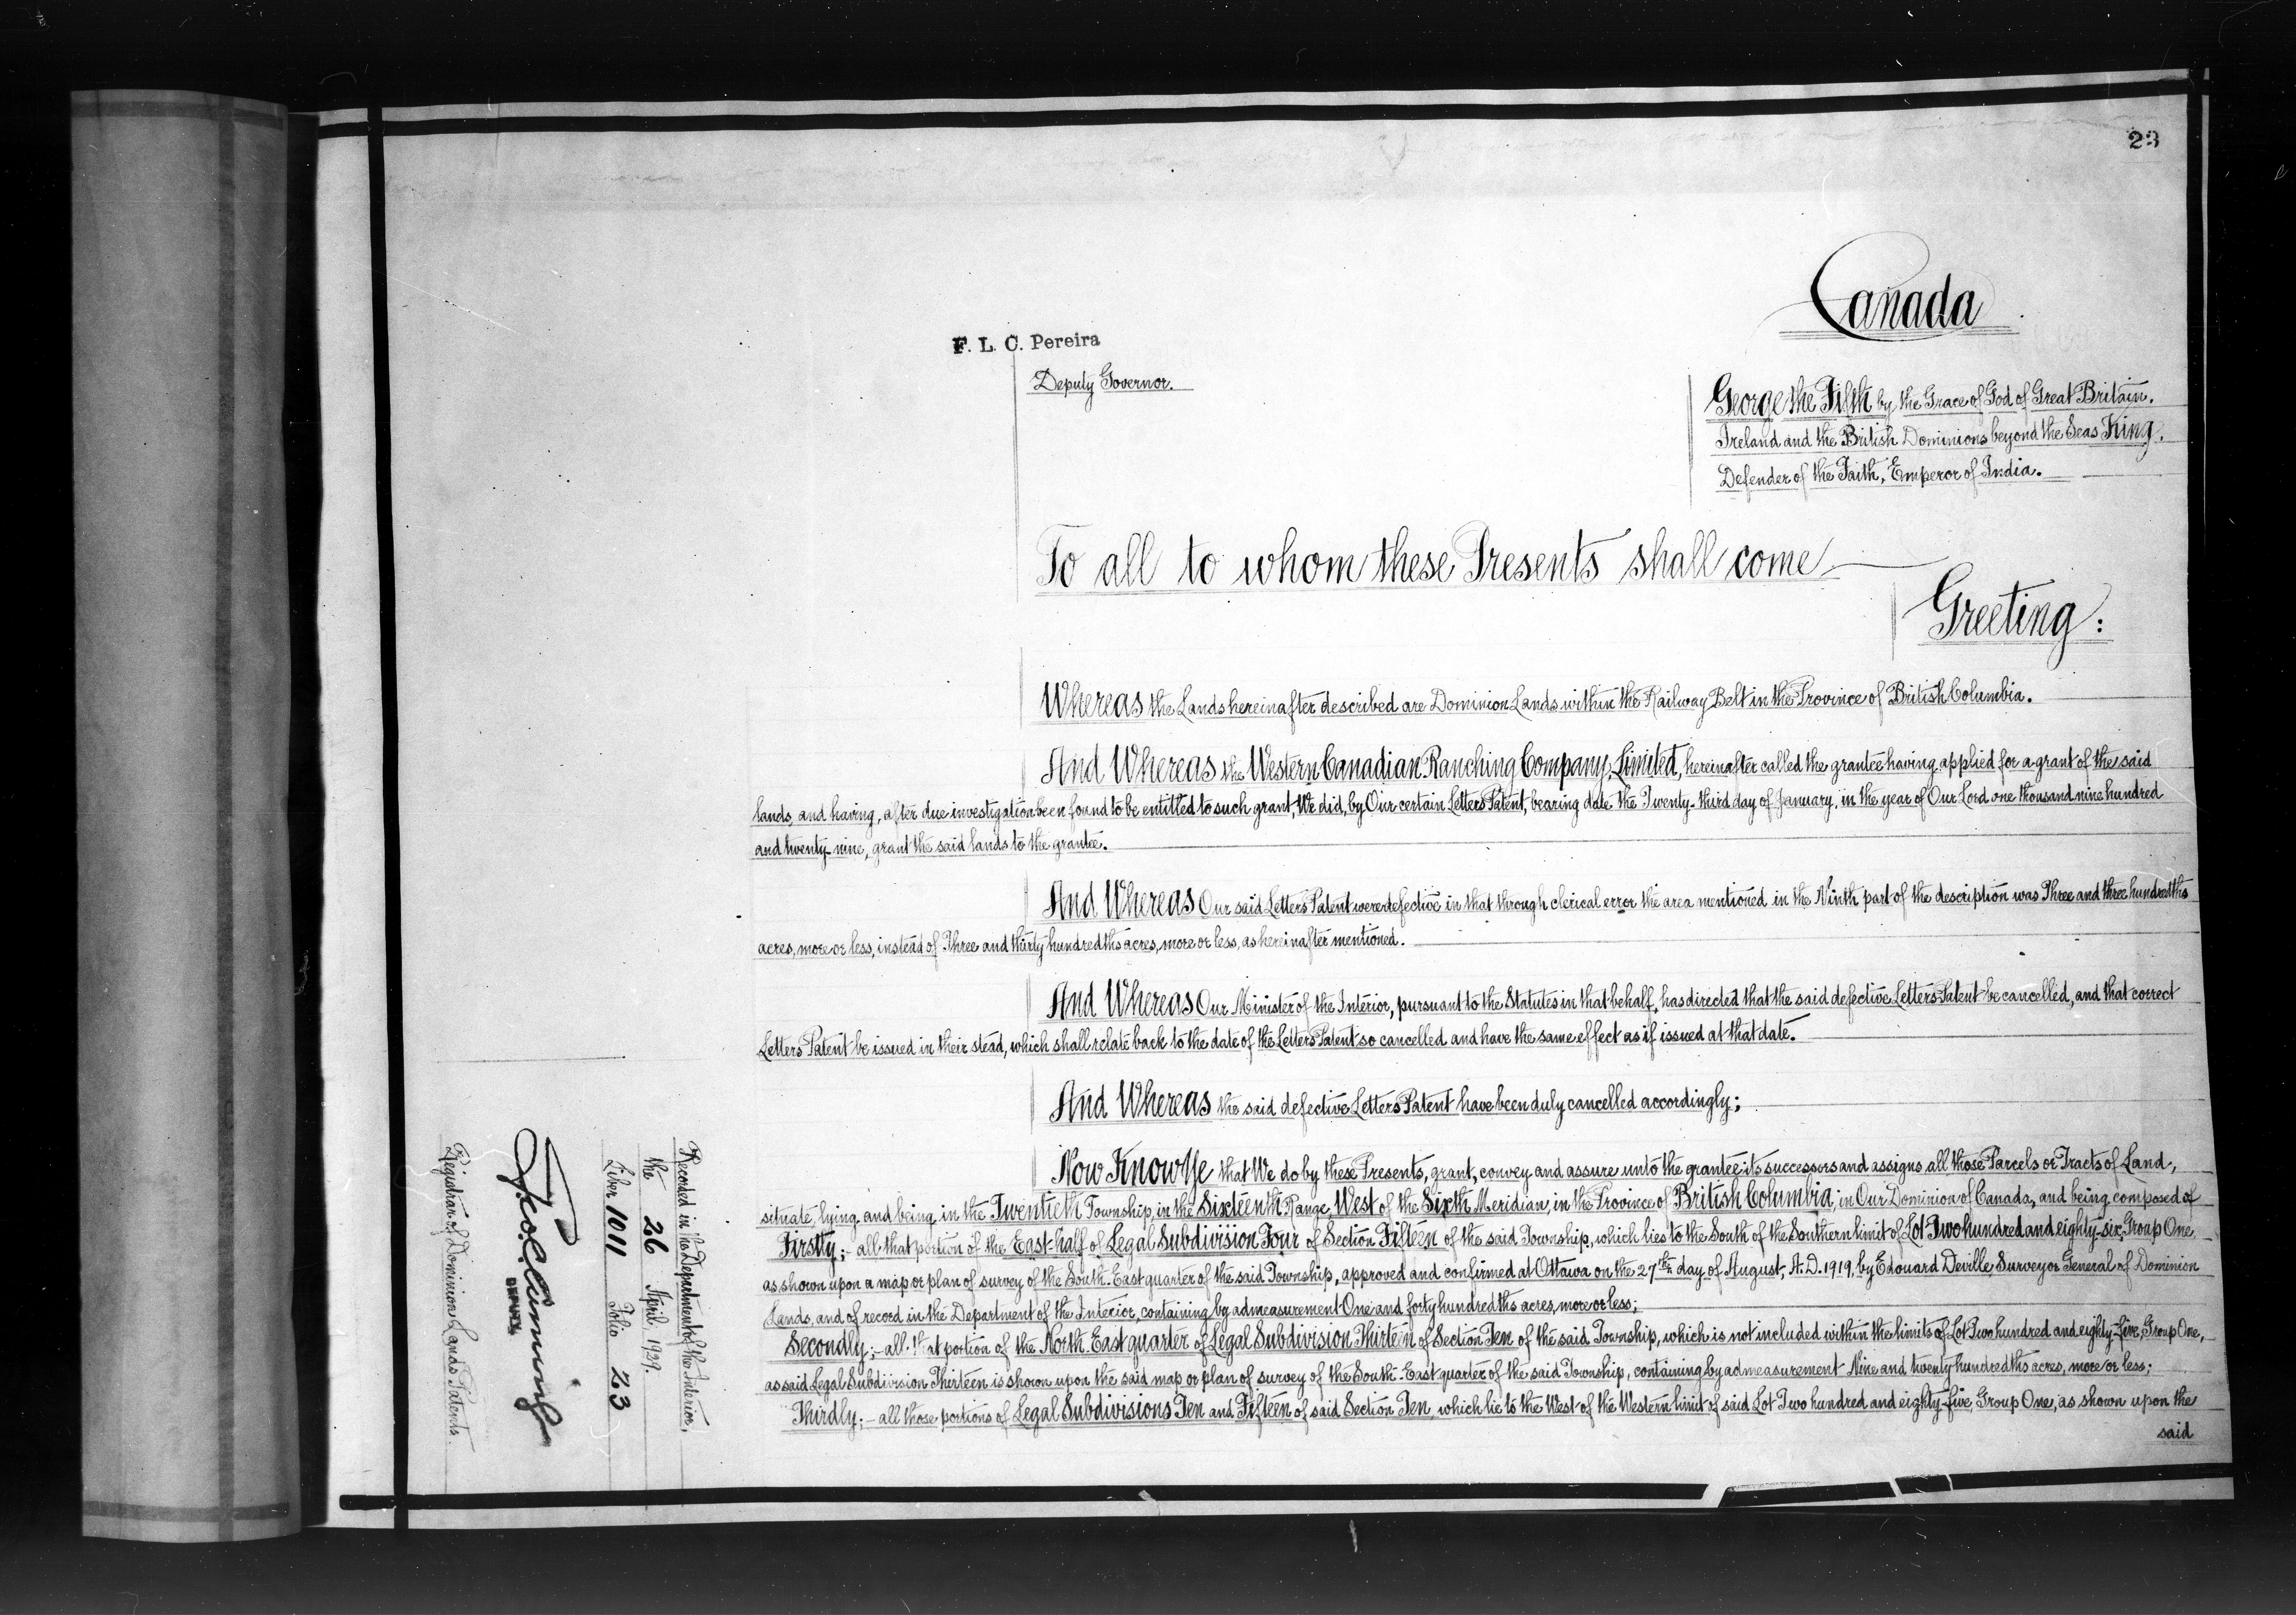 23
Canada
F. L. C. Pereira
Deputy Governor.
George the Fifth by the Grace of God of Great Britain,
Ireland and the British Dominions beyond the Seas King,
Defender of the Faith, Emperor of India.
To all to whom these Presents shall come
Greeting:
Whereas the Lands hereinafter described are Dominion Lands within the Railway Belt in the Province of British Columbia.
And Whereas the Western Canadian Ranching Company, Limited, hereinafter called the grantee having applied for a grant of the said
lands, and having, after due investigation been found to be entitled to such grant, We did, by Our certain Letters Patent, bearing date the Twenty-third day of January, in the year of Our Lord one thousand nine hundred
and twenty nine, grant the said lands to the grantee.
And Whereas Our said Letters Patent were defective in that through clerical error the area mentioned in the Ninth part of the description was Three and three hundredths
acres, more or less, instead of Three and thirty hundredths acres, more or less, as hereinafter mentioned.
And Whereas Our Minister of the Interior, pursuant to the Statutes in that behalf, has directed that the said defective Letters Patent be cancelled, and that correct
Letters Patent be issued in their stead, which shall relate back to the date of the Letters Patent so cancelled and have the same effect as if issued at that date.
And Whereas the said defective Letters Patent have been duly cancelled accordingly;
Now Know Ye that We do by these Presents, grant, convey and assure unto the grantee its successors and assigns all those Parcels or Tracts of Land,
situate, lying and being in the Twentieth Township, in the Sixteenth Range, West of the Sixth Meridian, in the Province of British Columbia, in Our Dominion of Canada, and being composed of
Firstly;- all that portion of the East-half of Legal Subdivision Four of Section Fifteen of the said Township, which lies to the South of the Southern limit of Lot Two hundred and eighty-six, Group One,
as shown upon a map or plan of survey of the South-East quarter of the said Township, approved and confirmed at Ottawa on the 27th day of August, A.D. 1919, by Edouard Deville, Surveyor General of Dominion
Lands, and of record in the Department of the Interior, containing by admeasurement One and forty hundredths acres, more or less;
Secondly;- all that portion of the North East quarter of Legal Subdivision Thirteen of Section Ten of the said Township, which is not included within the limits of Lot Two hundred and eighty-five, Group One,
as said Legal Subdivision Thirteen is shown upon the said map or plan of survey of the South-East quarter of the said Township, containing by admeasurement Nine and twenty hundredths acres, more or less;
Thirdly;- all those portions of Legal Subdivisions Ten and Fifteen of said Section Ten, which lie to the West of the Western limit of said Lot Two hundred and eighty-five, Group One, as shown upon the
said
Recorded in the Department of the Interior,
the 26 April, 1929.
Liber 1011 Folio 23
DEPUTY
Registrar of Dominion Lands Patents.